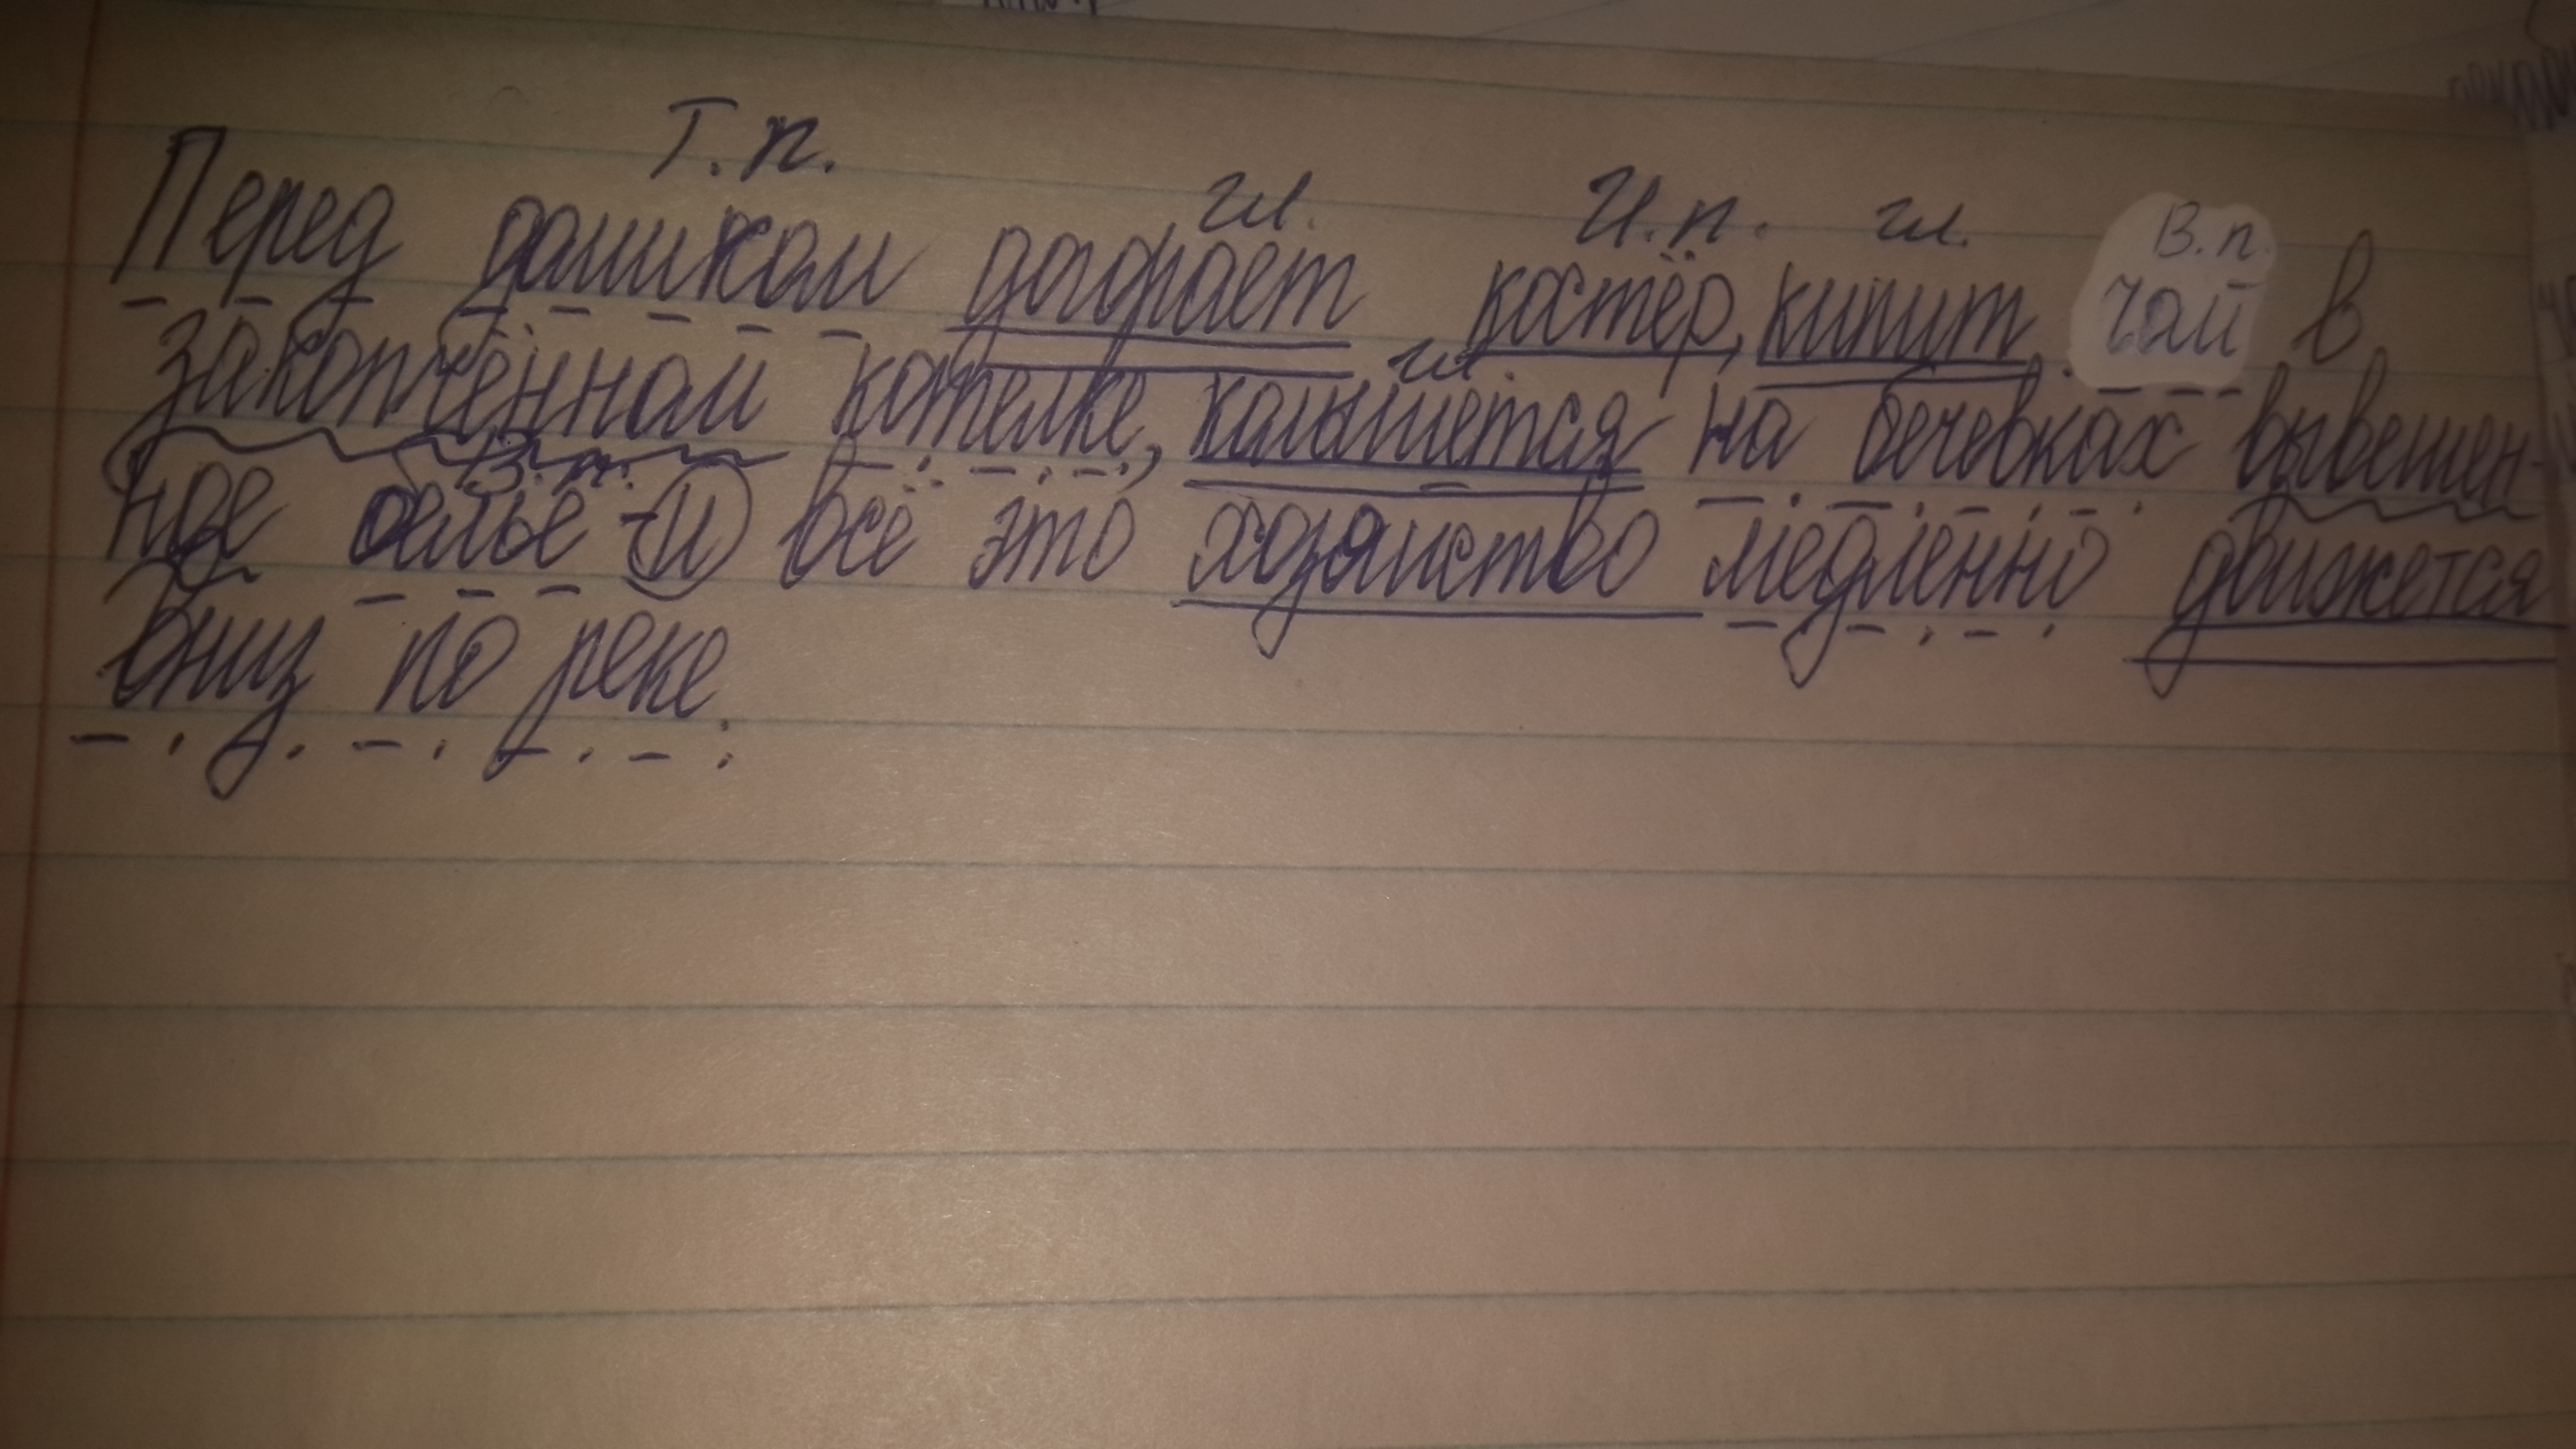 Т.п.
гл. И.п. гл. В.п.
Перед домиком догорает костёр, кипит чай в
гл.
закопчённом котелке, колышется на бечевках вывешен-
В.п.
ное бельё - и всё это хозяйство медленно движется
вниз по реке.